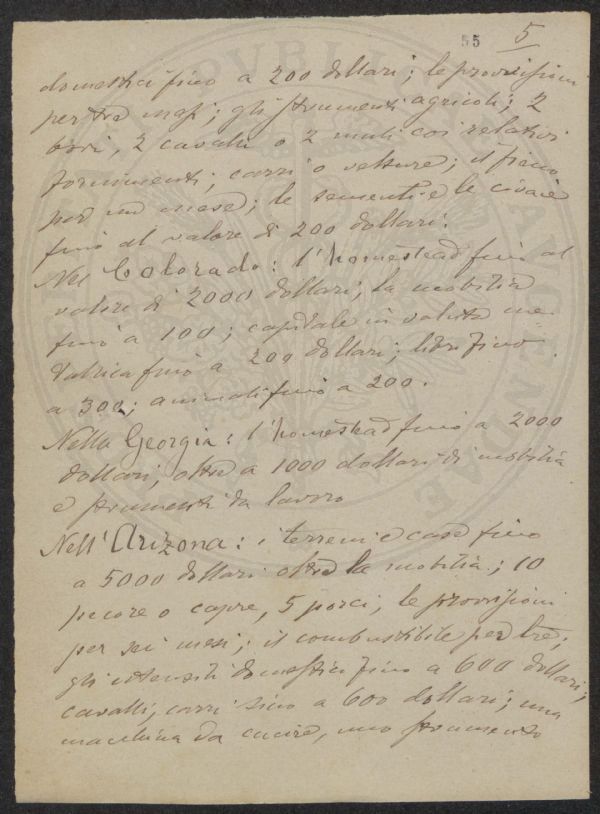 55 5
domestici fino a 200 dollari; le provvisioni
per tre mesi; gli strumenti agricoli; 2
bovi, 2 cavalli o 2 muli coi relativi
fornimenti, carri o vetture; il fieno
per un mese; le sementi e le civaie
fino al valore di 200 dollari.
Nel Colorado: l'homestead fino al
valore di 2000 dollari; la mobilia
fino a 100; capitale in valuta me-
tallica fino a 200 dollari; libri fino
a 300; animali fino a 200.
Nella Georgia: l'homestead fino a 2000
dollari, oltre a 1000 dollari di mobilia
e strumenti da lavoro
Nell'Arizona: i terreni e case fino
a 5000 dollari oltre la mobilia; 10
pecore o capre, 5 porci, le provvisioni
per sei mesi; il combustibile per tre;
gli utensili domestici fino a 600 dollari;
cavalli, carri sino a 600 dollari; una
macchina da cucire, uno strumento